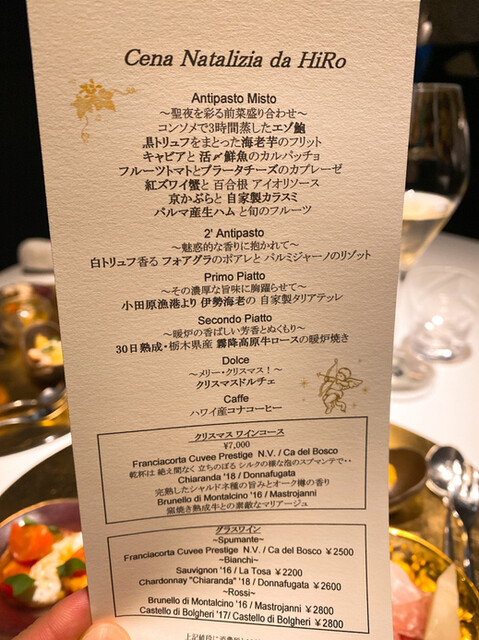 Cena Natalizia da HiRo
Antipasto Misto
～聖夜を彩る前菜盛り合わせ～
コンソメで3時間蒸したエゾ鮑
黒トリュフをまとった海老芋のフリット
キャビアと 活〆鮮魚のカルパッチョ
フルーツトマトとブラータチーズのカプレーゼ
紅ズワイ蟹と 百合根 アイオリソース
京かぶらと 自家製カラスミ
パルマ産生ハム と旬のフルーツ
2' Antipasto
～魅惑的な香りに抱かれて～
白トリュフ香る フォアグラのポアレと パルミジャーノのリゾット
Primo Piatto
～その濃厚な旨味に胸躍らせて～
小田原漁港より 伊勢海老の 自家製タリアテッレ
Secondo Piatto
～暖炉の香ばしい芳香とぬくもり～
30日熟成・栃木県産 霧降高原牛ロースの暖炉焼き
Dolce
～メリー・クリスマス！～
クリスマスドルチェ
Caffe
ハワイ産コナコーヒー
クリスマス ワインコース
¥7,000
Franciacorta Cuvee Prestige N.V. / Ca del Bosco
乾杯は 絶え間なく 立ちのぼる シルクの様な泡のスプマンテで・・
Chiaranda '18 / Donnafugata
完熟したシャルドネ種の旨みとオーク樽の香り
Brunello di Montalcino '16 / Mastrojanni
窯焼き熟成牛との素敵なマリアージュ
グラスワイン
~Spumante~
Franciacorta Cuvee Prestige N.V. / Ca del Bosco ¥2500
~Bianchi~
Sauvignon '16 / La Tosa ¥2200
Chardonnay "Chiaranda" '18 / Donnafugata ¥2600
~Rossi~
Brunello di Montalcino '16 / Mastrojanni ¥2800
Castello di Bolgheri '17/ Castello di Bolgheri ¥2800